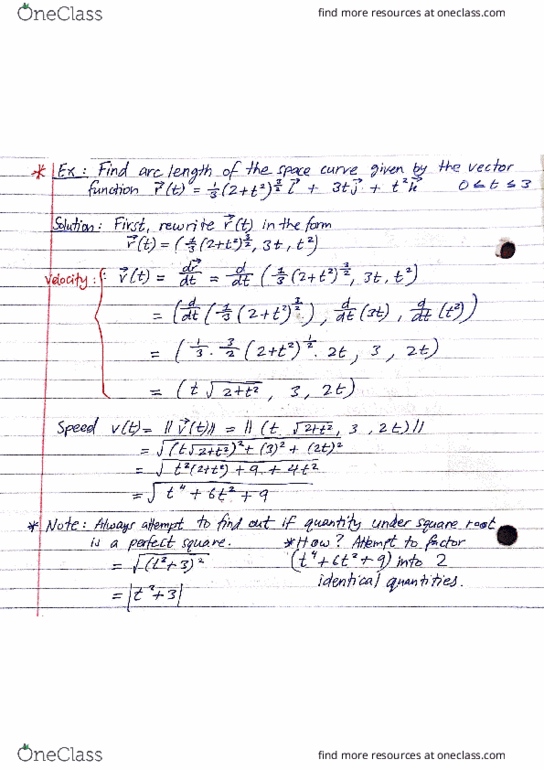 OneClass
find more resources at oneclass.com
* Ex: Find arc length of the space curve given by the vector
function r⃗(t) = 1/3(2+t²)^(3/2) i⃗ + 3t j⃗ + t² k⃗ 0 ≤ t ≤ 3
Solution: First, rewrite r⃗(t) in the form
r⃗(t) = (1/3(2+t²)^(3/2), 3t, t²)
Velocity: v⃗(t) = dr⃗/dt = d/dt (1/3(2+t²)^(3/2), 3t, t²)
= (d/dt(1/3(2+t²)^(3/2)), d/dt(3t), d/dt(t²))
= (1/3 · 3/2 (2+t²)^(1/2) · 2t, 3, 2t)
= (t√(2+t²), 3, 2t)
Speed v(t) = ||v⃗(t)|| = ||(t √(2+t²), 3, 2t)||
= √((t√(2+t²))² + (3)² + (2t)²)
= √(t²(2+t²) + 9 + 4t²)
= √(t⁴ + 6t² + 9)
* Note: Always attempt to find out if quantity under square root
is a perfect square. * How? Attempt to factor
= √((t²+3)²) (t⁴+6t²+9) into 2
= |t²+3| identical quantities.
OneClass
find more resources at oneclass.com